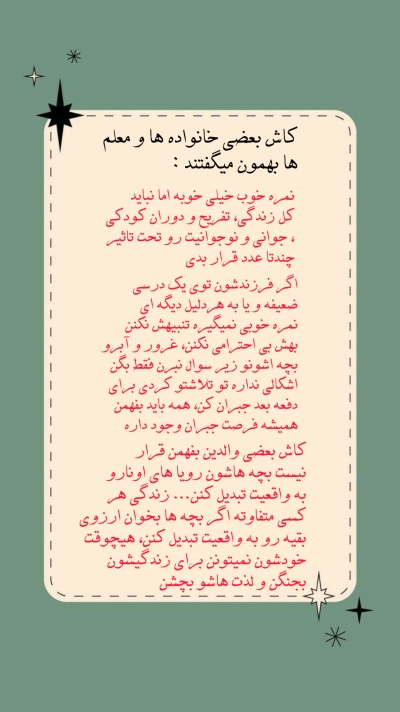 کاش بعضی خانواده ها و معلم
ها بهمون میگفتند :
نمره خوب خیلی خوبه اما نباید
کل زندگی، تفریح و دوران کودکی
، جوانی و نوجوانیت رو تحت تاثیر
چندتا عدد قرار بدی
اگر فرزندشون توی یک درسی
ضعیفه و یا به هردلیل دیگه ای
نمره خوبی نمیگیره تنبیهش نکنن
بهش بی احترامی نکنن، غرور و آبرو
بچه اشونو زیر سوال نبرن فقط بگن
اشکالی نداره تو تلاشتو کردی برای
دفعه بعد جبران کن، همه باید بفهمن
همیشه فرصت جبران وجود داره
کاش بعضی والدین بفهمن قرار
نیست بچه هاشون رویا های اونارو
به واقعیت تبدیل کنن... زندگی هر
کسی متفاوته اگر بچه ها بخوان ارزوی
بقیه رو به واقعیت تبدیل کنن، هیچوقت
خودشون نمیتونن برای زندگیشون
بجنگن و لذت هاشو بچشن